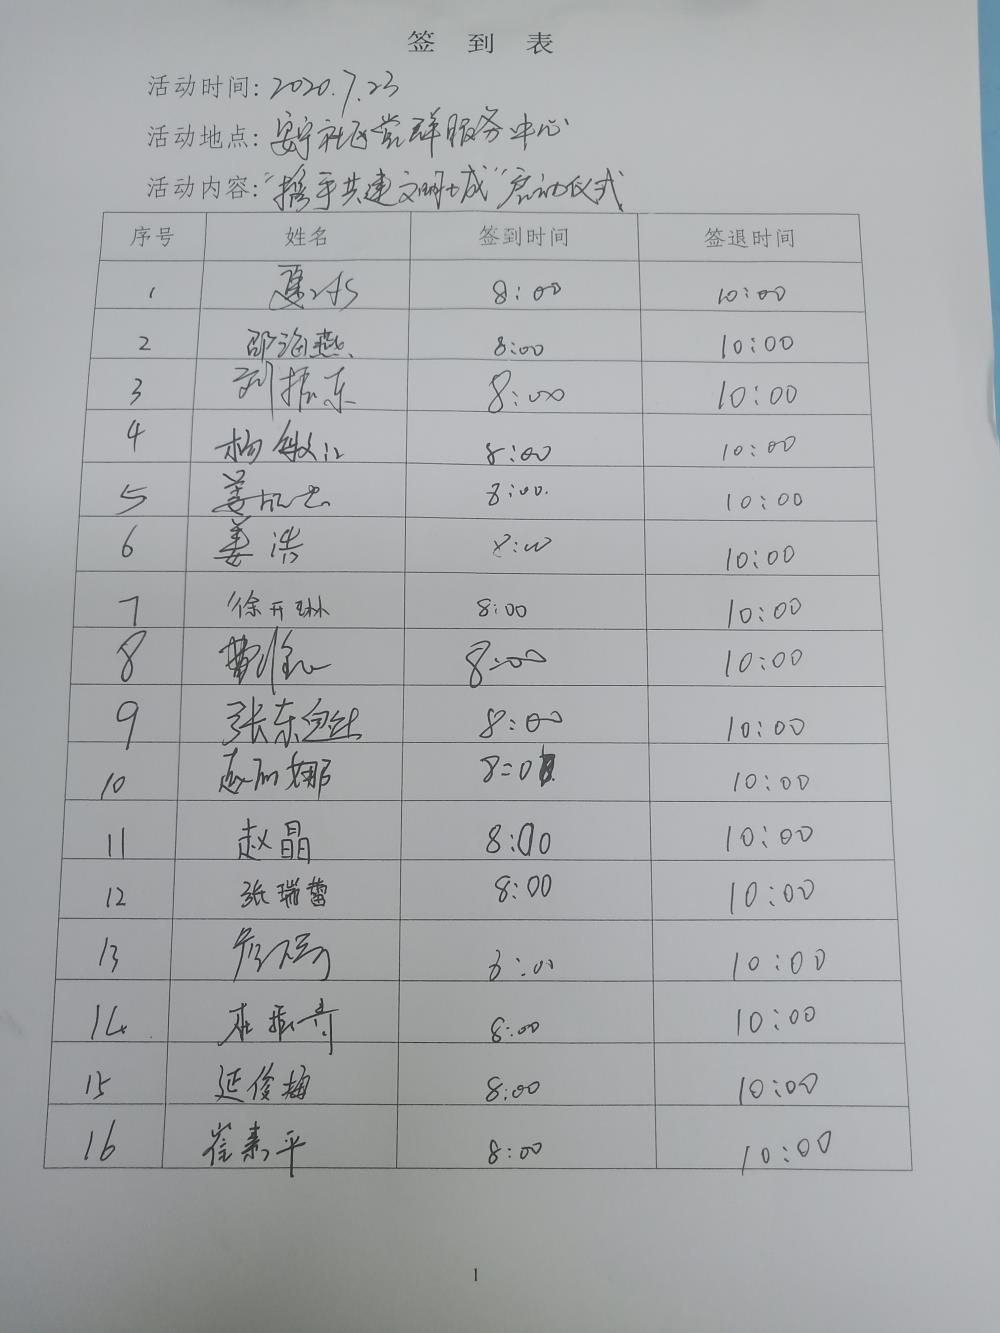 签 到 表
活动时间: 2020.7.23
活动地点: 安宁社区党群服务中心
活动内容: "携手共建文明城"启动仪式
序号 姓名 签到时间 签退时间
1 8:00 10:00
2 邵海燕 8:00 10:00
3 刘振东 8:00 10:00
4 杨敏江 8:00 10:00
5 姜 8:00. 10:00
6 姜浩 8:00 10:00
7 徐开琳 8:00 10:00
8 8:00 10:00
9 张东 8:00 10:00
10 娜 8:00 10:00
11 赵晶 8:00 10:00
12 张瑞蕾 8:00 10:00
13 8:00 10:00
14 振奇 8:00 10:00
15 延俊梅 8:00 10:00
16 崔素平 8:00 10:00
1